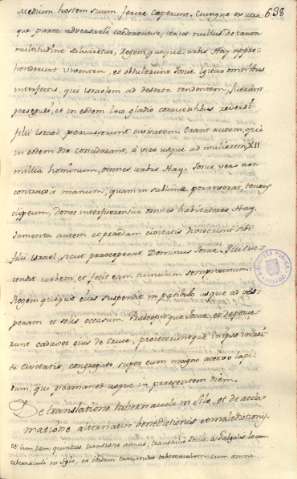 638
medium hostem suum ferire ceperunt. Cumque ex utra
que parte adversarii caederentur, ita ut nullus de tanta
multitudine salvaretur, Regem quoque urbis Hay appre
henderunt viventem, et obtulerunt Josue. Igitur omnibus
interfectis, qui Israelem ad deserta tendentem, fuerant
persequuti, et in eodem loco gladio corruentibus, reversi
filii Israel percusserunt civitatem. Erant autem, qui
in eodem die conciderant, a viro usque ad mulierem XII
millia hominum, omnes urbis Hay. Josue vero non
contraxit manum, quam in sublime porrexerat, tenens
clypeum, donec interficerentur omnes habitatores Hay.
Jumenta autem et praedam civitatis diviserunt sibi
filii Israel, sicut praeceperat Dominus Josue. Qui suc
cendit urbem, et fecit eam tumulum sempiternum.
Regem quoque eius suspendit in patibulo usque ad ves
peram et solis occasum. Praecepitque Josue, et deposue
runt cadaver eius de cruce, proieceruntque in ipso introi
tu civitatis, congesto super eum magno acervo lapi
dum, qui permanet usque in praesentem diem.
De translatione tabernaculi in Silo, et de accla
matione alternatim benedictionis et maledictionis.